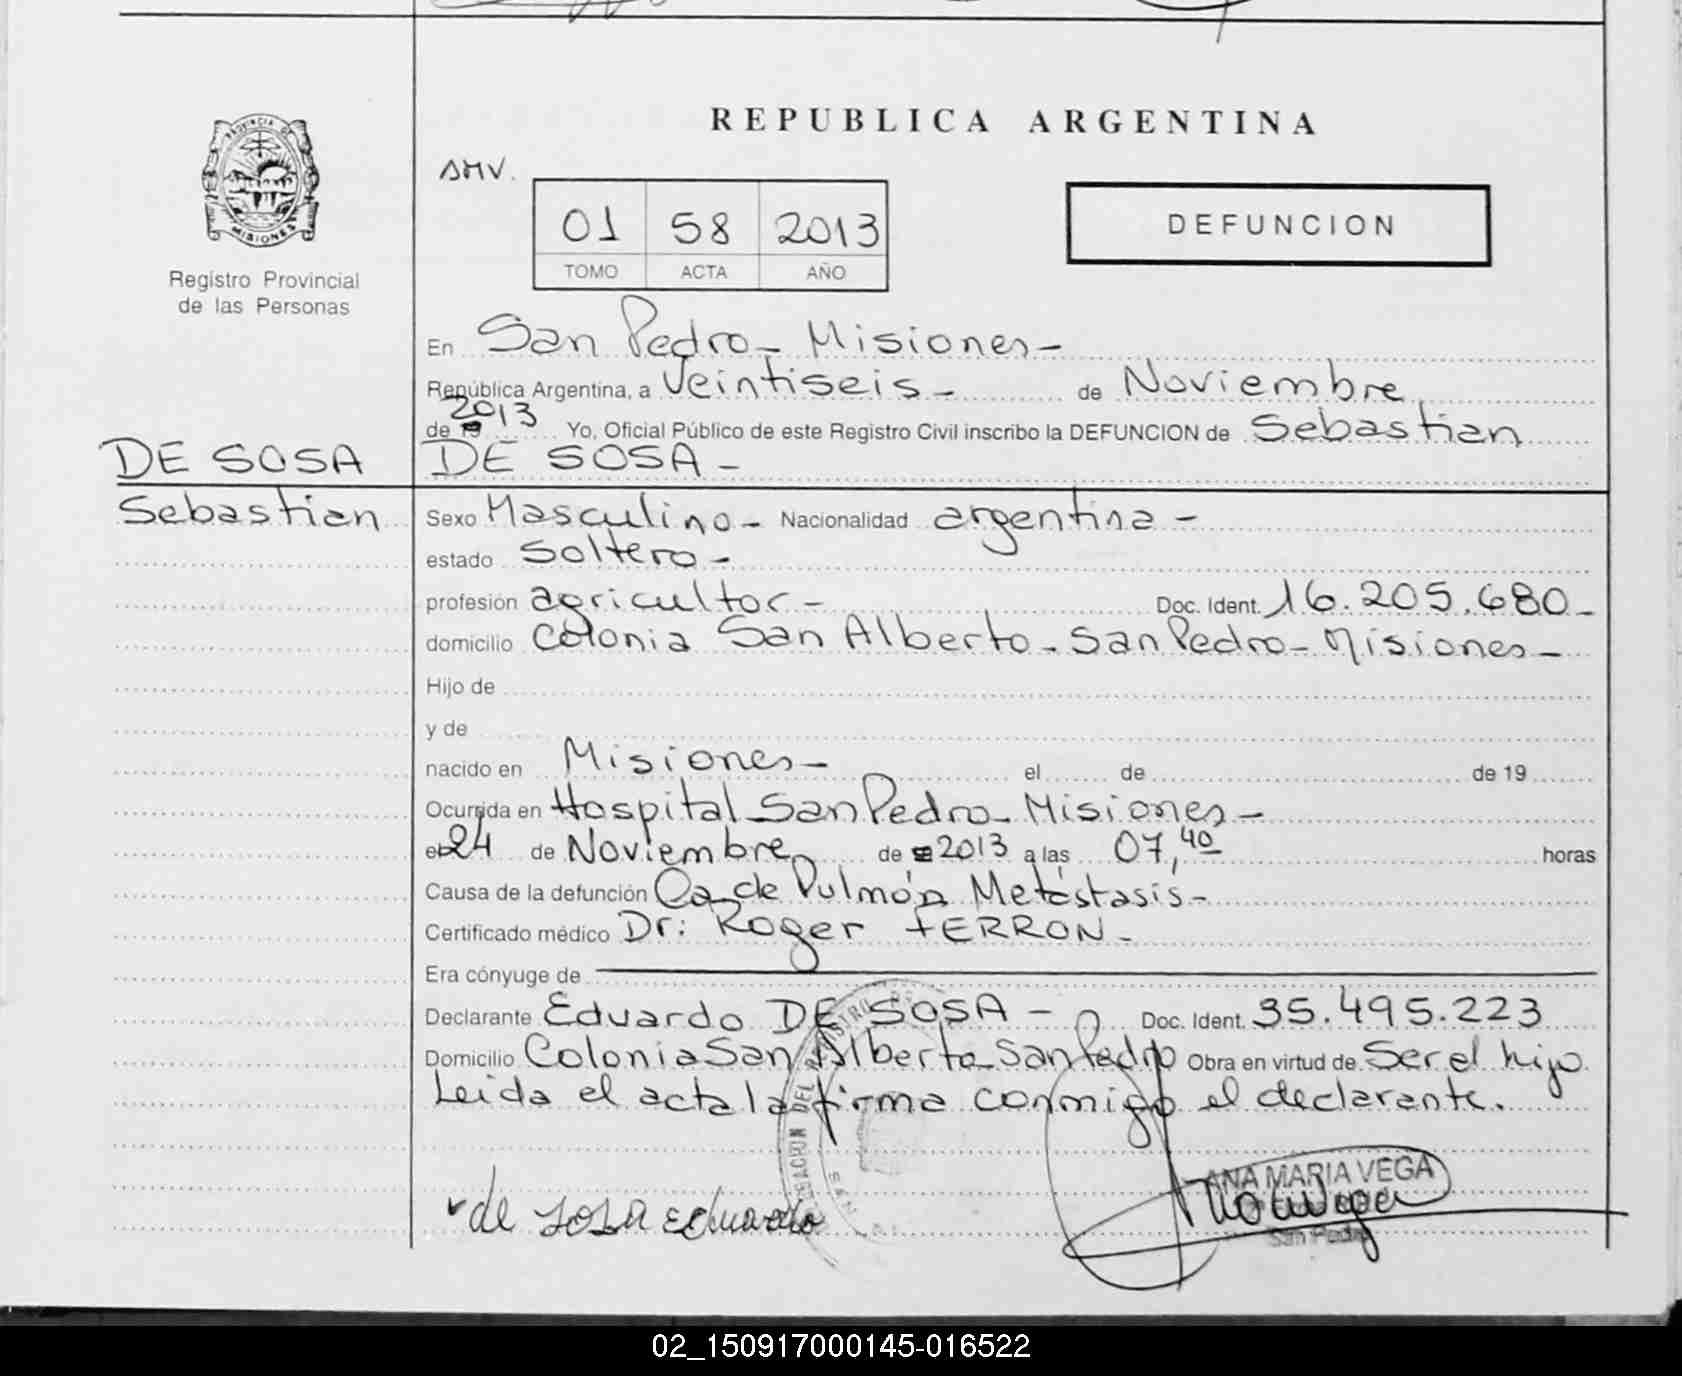 REPUBLICA ARGENTINA
PROVINCIA DE
MISIONES
Registro Provincial
de las Personas
AMV.
01 58 2013
TOMO ACTA AÑO
DEFUNCION
En San Pedro - Misiones -
República Argentina, a Veintiseis - de Noviembre
de 19 2013 Yo, Oficial Público de este Registro Civil inscribo la DEFUNCION de Sebastian
DE SOSA DE SOSA -
Sebastian
Sexo Masculino - Nacionalidad argentina -
estado Soltero -
profesión agricultor - Doc. Ident. 16.205.680 -
domicilio Colonia San Alberto - San Pedro - Misiones -
Hijo de
y de
nacido en Misiones - el de de 19
Ocurrida en Hospital San Pedro - Misiones -
el 24 de Noviembre de 2013 a las 07,40 horas
Causa de la defunción Ca de Pulmón Metástasis -
Certificado médico Dr: Roger FERRON -
Era cónyuge de
Declarante Eduardo DE SOSA - Doc. Ident. 35.495.223
Domicilio Colonia San Alberto - San Pedro Obra en virtud de Ser el hijo
Leida el acta la firma conmigo el declarante.
de SOSA Eduardo
ANA MARIA VEGA
San Pedro
02_150917000145-016522